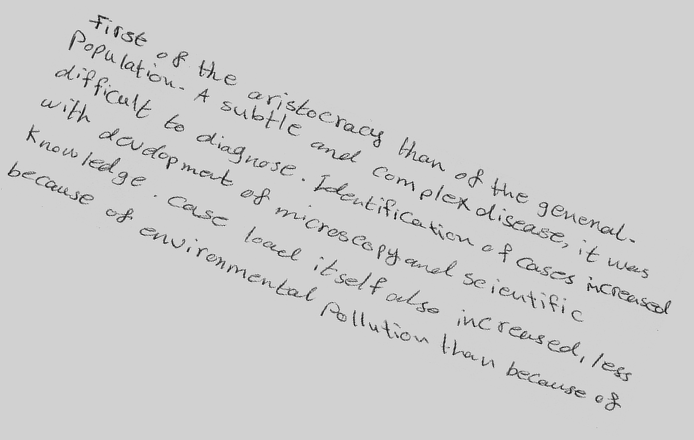 First of the aristocracy than of the general.
Population. A subtle and complex disease, it was
difficult to diagnose. Identification of cases increased
with development of microscopy and scientific
Knowledge. Case load itself also increased, less
because of environmental Pollution than because of